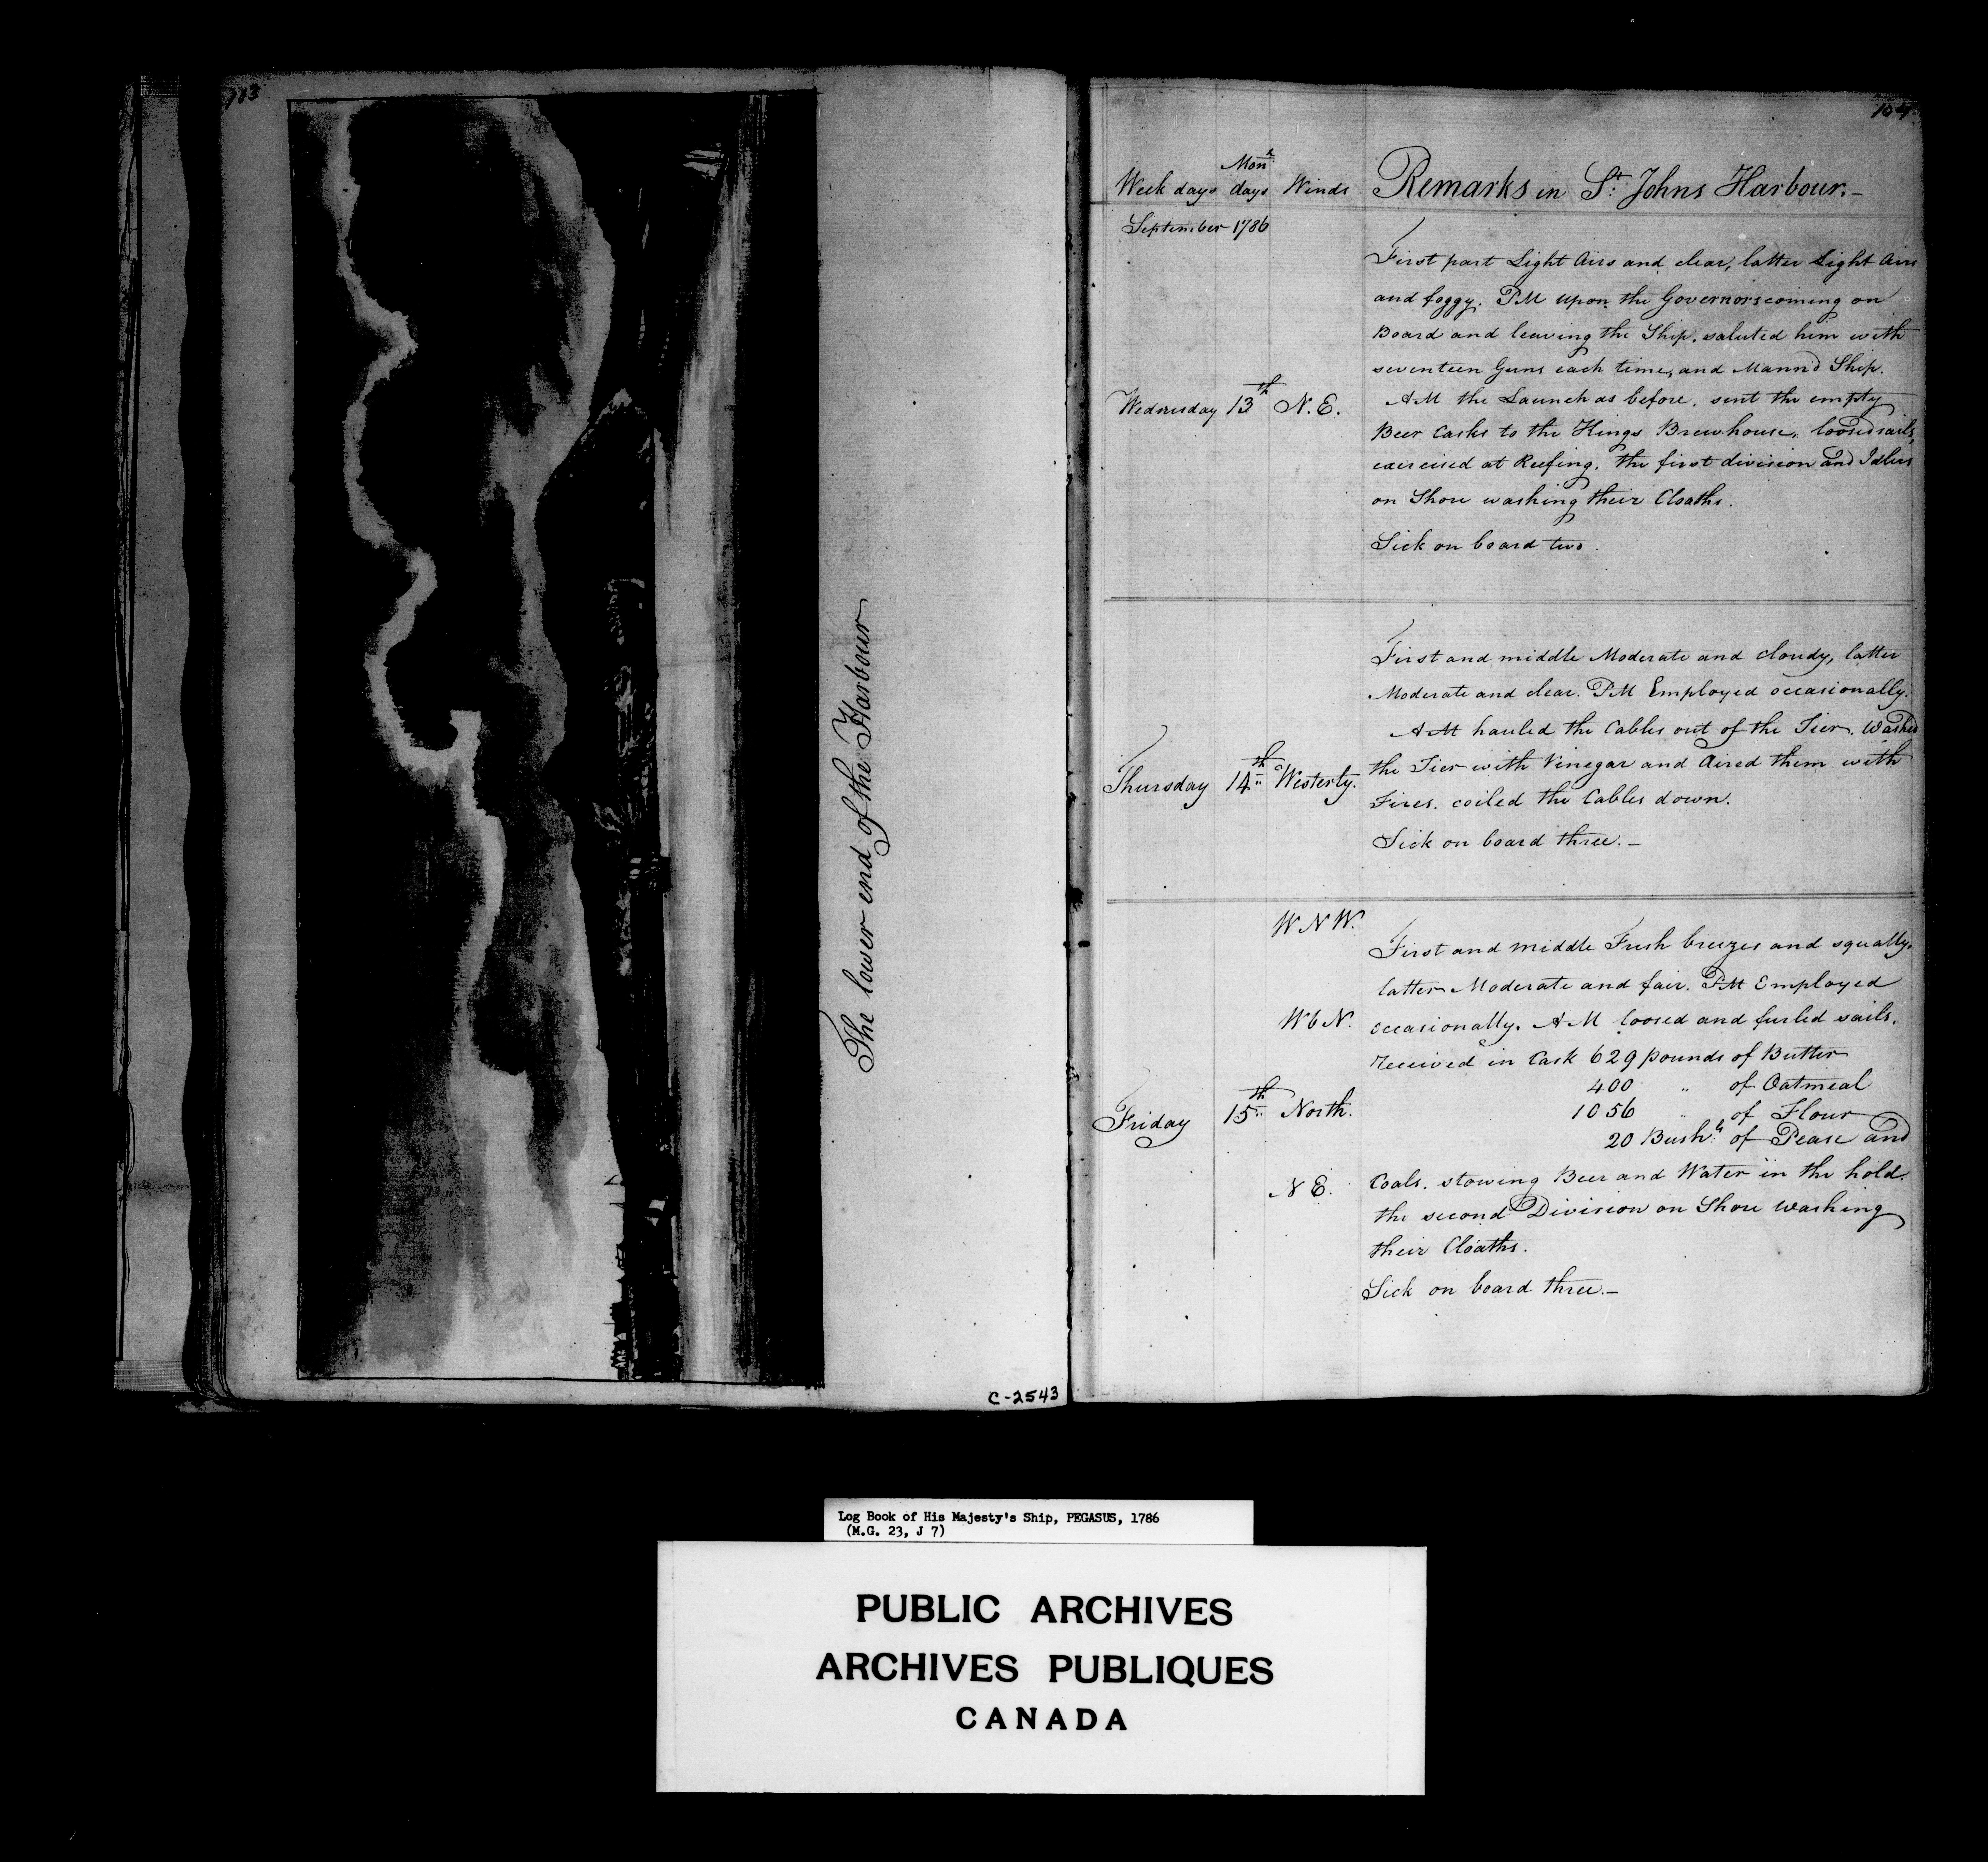 113
The lower end of the Harbour
C-2543
Week days Monx days Winds Remarks in St. Johns Harbour.-
September 1786
Wednesday 13th N.E.
First part Light Airs and clear, latter Light Airs
and foggy. PM upon the Governors coming on
Board and leaving the Ship, saluted him with
seventeen Guns each time, and Mann'd Ship.
AM the Launch as before. sent the empty
Beer Casks to the Kings Brewhouse, loosed sails,
exercised at Reefing. the first division and Idlers
on Shore washing their Cloaths.
Sick on board two.
Thursday 14th Westerly.
First and middle Moderate and cloudy, latter
Moderate and clear. PM Employed occasionally.
AM hauled the Cables out of the Tier, Washed
the Tier with Vinegar and Aired them with
Fires. coiled the Cables down.
Sick on board three.-
Friday 15th
WNW.
WbN.
North.
NE.
First and middle Fresh breezes and squally,
latter Moderate and fair. PM Employed
occasionally. AM loosed and furled sails.
received in Cask 629 pounds of Butter
400 " of Oatmeal
1056 " of Flour
20 Bushls of Pease and
Coals. stowing Beer and Water in the hold.
the second Division on Shore washing
their Cloaths.
Sick on board three.-
Log Book of His Majesty's Ship, PEGASUS, 1786
(M.G. 23, J 7)
PUBLIC ARCHIVES
ARCHIVES PUBLIQUES
CANADA